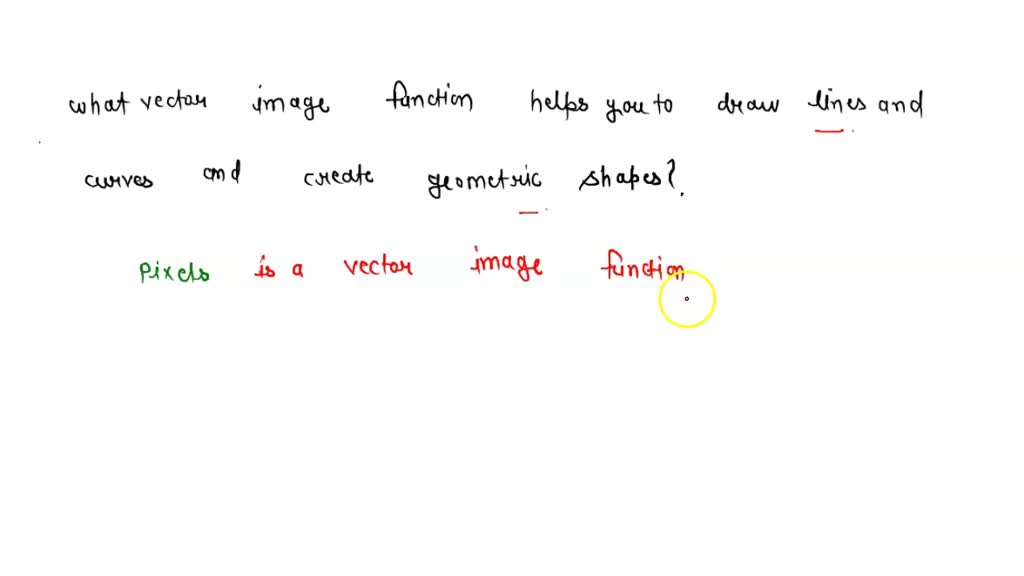 what vector image function helps you to draw lines and
curves and create geometric shapes?
pixels is a vector image function